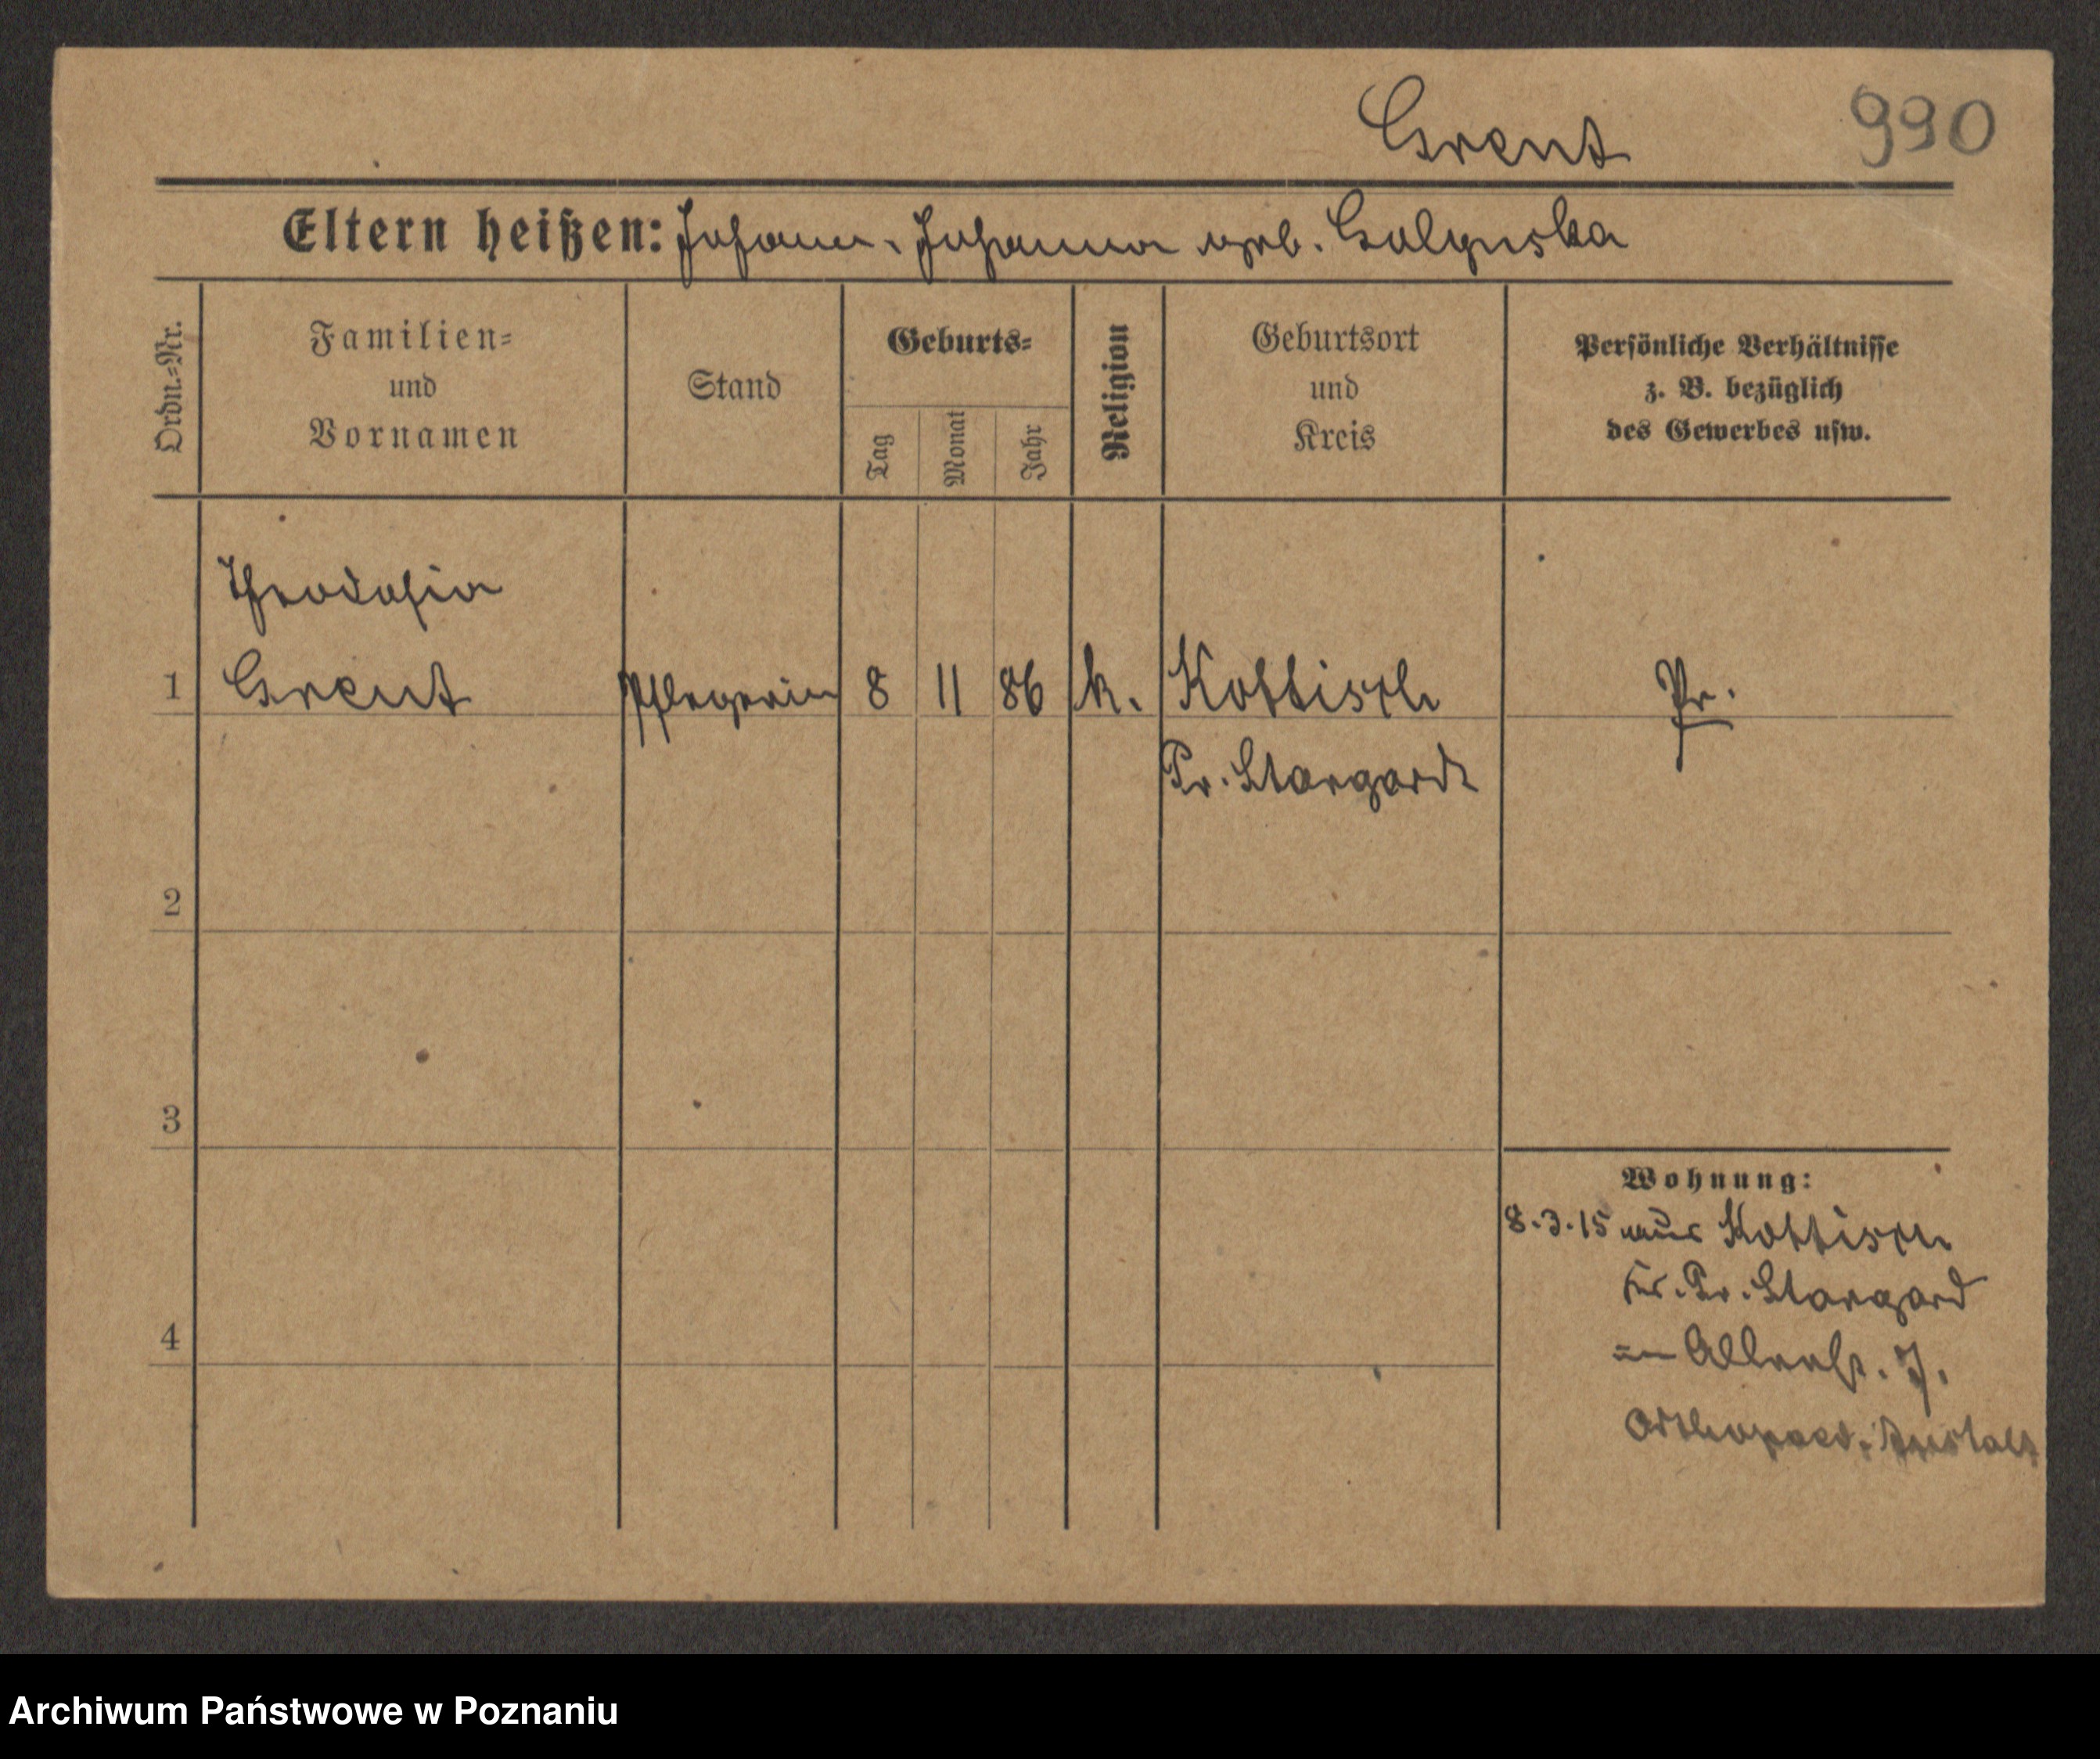 Grent 990
Eltern heißen: Johann, Johanna geb. Golynska
Ordn.-Nr.
Familien-
und
Vornamen
Stand
Geburts-
Tag
Monat
Jahr
Religion
Geburtsort
und
Kreis
Persönliche Verhältnisse
z. B. bezüglich
des Gewerbes usw.
Theodosia
1 Grent Pflegerin 8 11 86 k. Kottisch Pr.
Pr. Stargardt
2
3
4
Wohnung:
8.3.15 aus Kottisch
Kr. Pr. Stargard
7.
Orthopaed. Anstalt
Archiwum Państwowe w Poznaniu